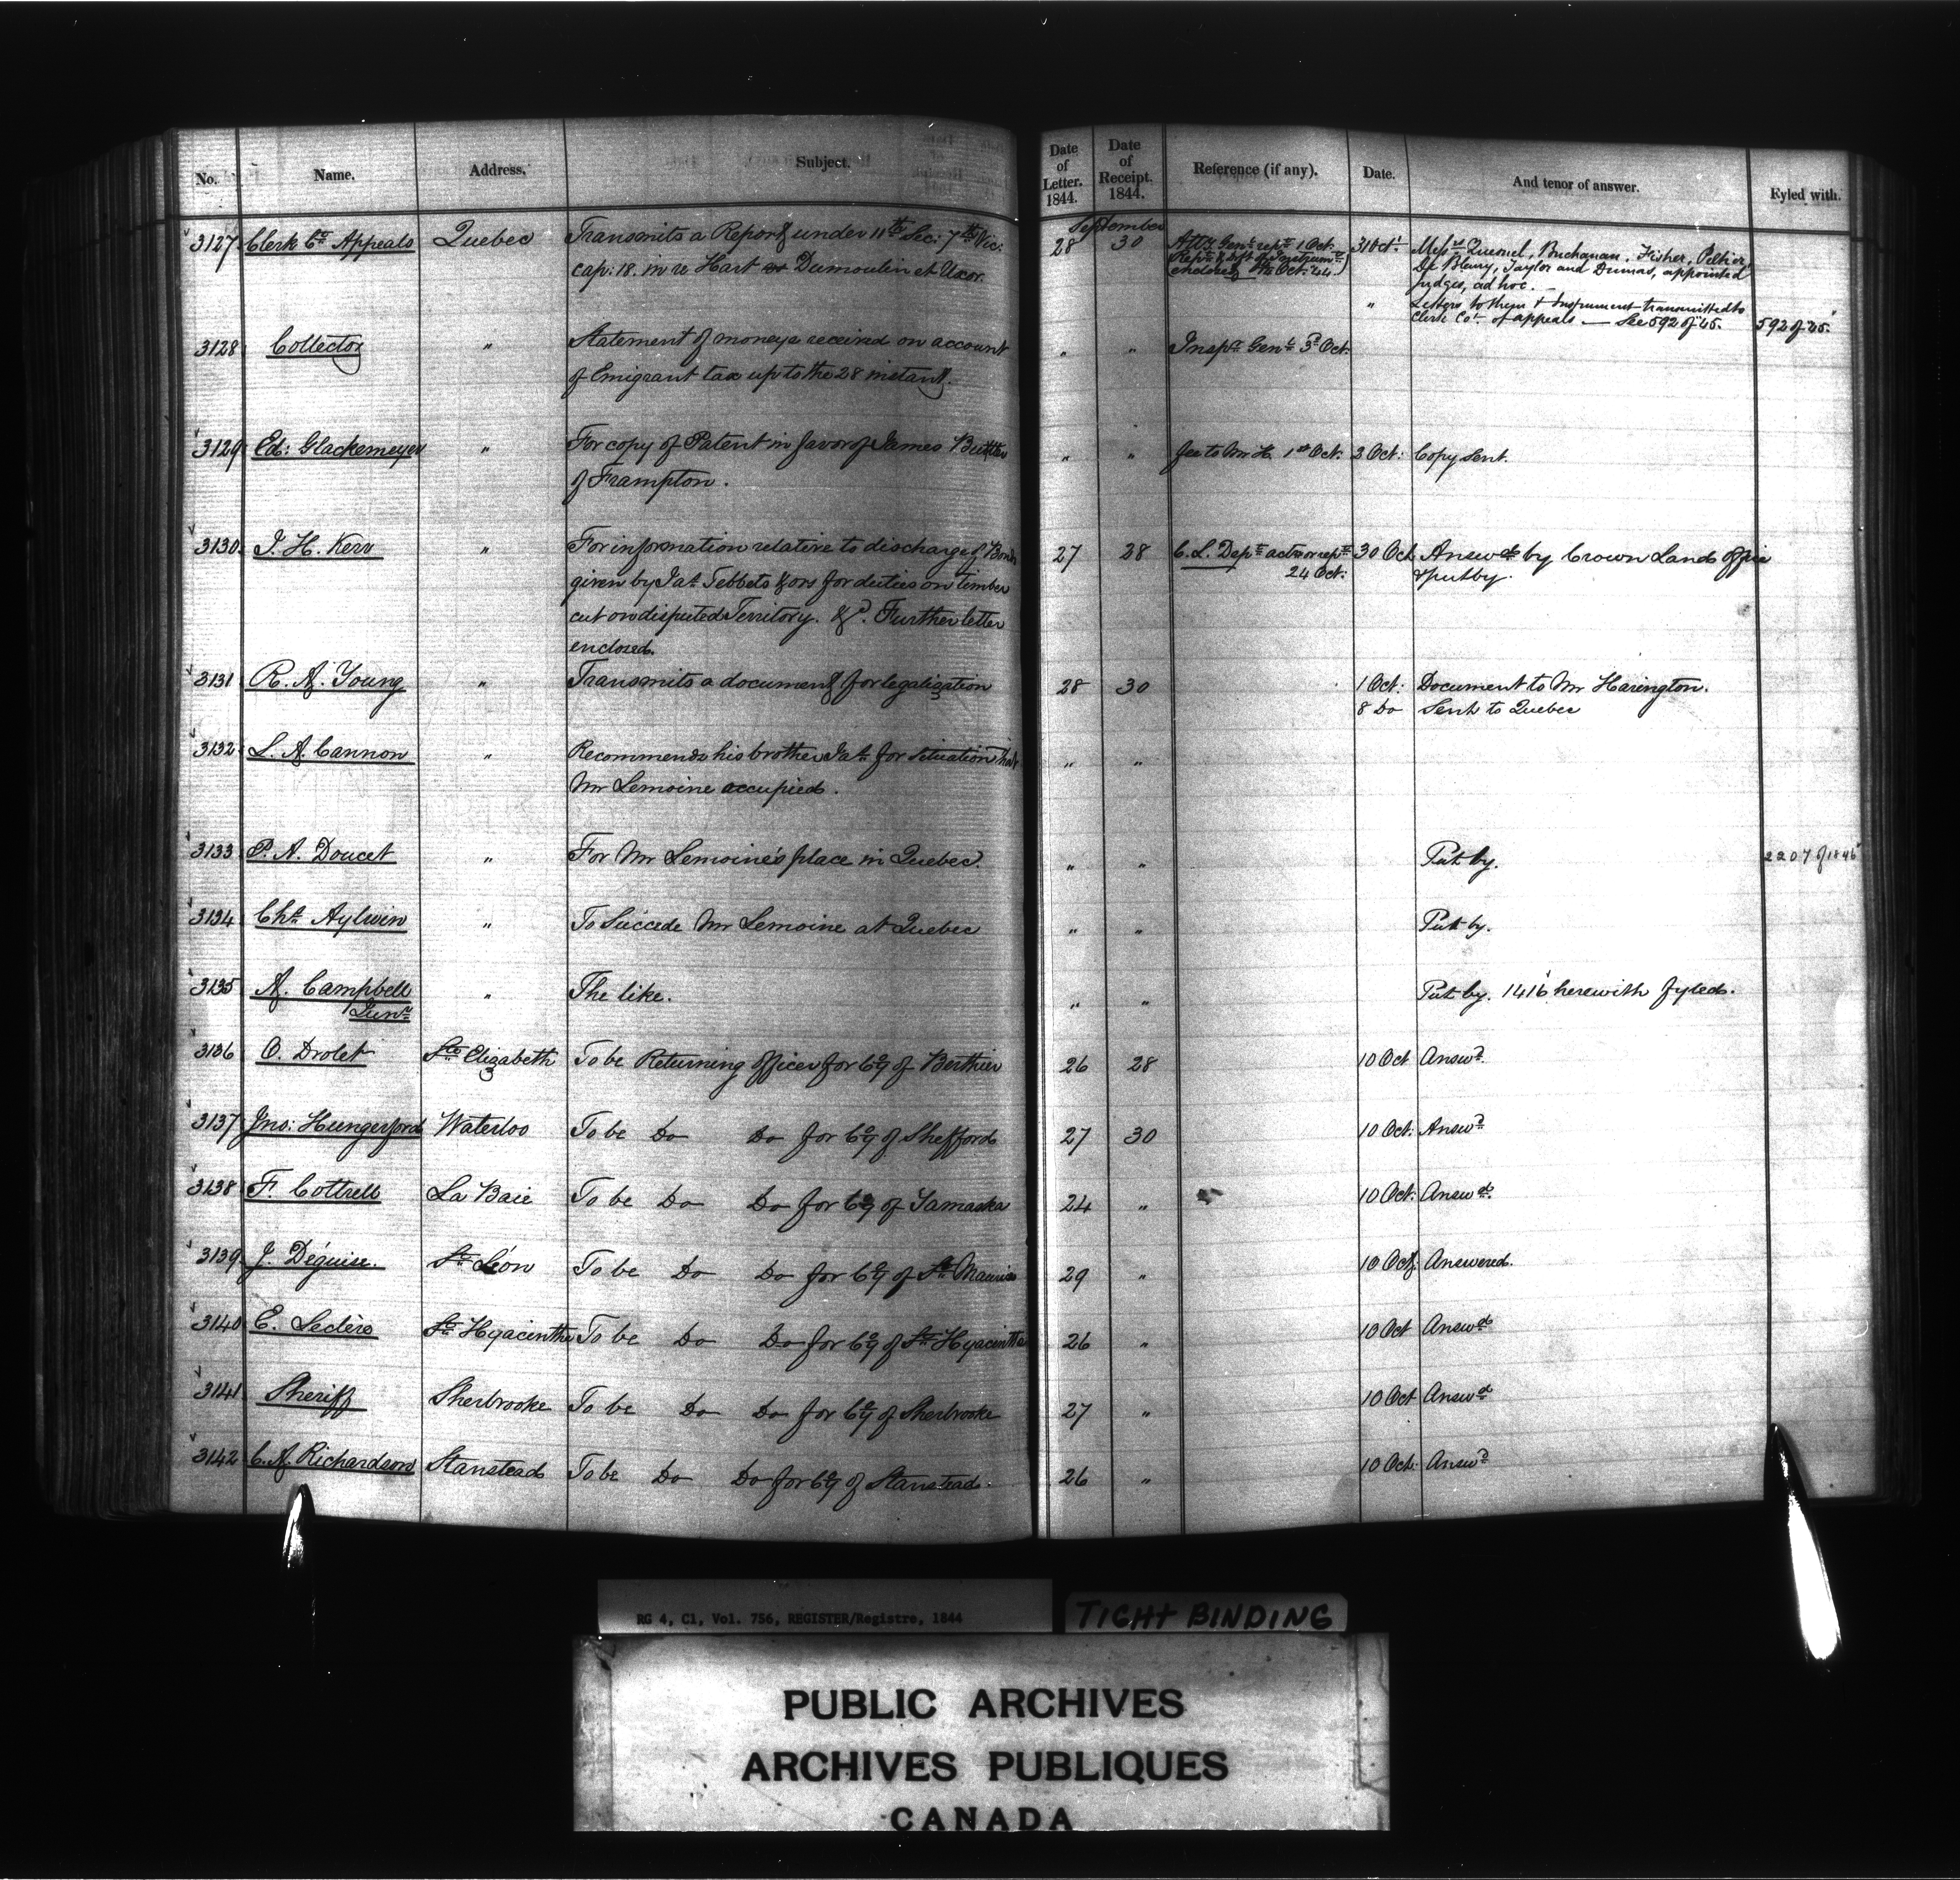 No. Name. Address. Subject. Date of Letter. 1844. Date of Receipt. 1844. Reference (if any). Date. And tenor of answer. Fyled with.
September
3127 Clerk Ct. Appeals Quebec Transmits a Report under 11th Sec: 7th Vic: 28 30 Atty Genl rept 1 Oct. 31 Oct. Messrs Quesnel, Buchanan, Fisher, Peltier,
cap: 18. in re Hart Dumoulin et Uxor. enclosed 7th Oct. 44. De Bleury, Taylor and Dumas, appointed
Judges, ad hoc.
" Letters to them & Instrument transmitted to
Clerk Ct. of appeals — See 592 of 45. 592 of 45.
3128 Collector " Statement of moneys received on account " " Inspr Genl 3d Oct.
of Emigrant tax up to the 28 instant.
3129 Ed: Glackemeyer " For copy of Patent in favor of James Butler " " fee to Mr H. 1st Oct. 2 Oct: Copy sent.
of Frampton.
3130 J. H. Kerr " For information relative to discharge of Bonds 27 28 C. L. Dept act or rept 30 Oct Answd by Crown Land Office
given by Jas Tebbets & ors for duties on timber 24 Oct: & put by.
cut on disputed Territory. &c. Further letter
enclosed.
3131 R. A. Young " Transmits a document for legalization 28 30 1 Oct: Document to Mr Harington.
8 Do Sent to Quebec
3132 L. A. Cannon " Recommends his brother Jas for situation that " "
Mr Lemoine occupied.
3133 P. A. Doucet " For Mr Lemoine's place in Quebec. " " Put by. 2207 of 1846
3134 Chs Aylwin " To Succede Mr Lemoine at Quebec " " Put by.
3135 A. Campbell " The like. " " Put by. 1416 herewith fyled.
Junr
3136 O. Drolet Ste Elizabeth To be Returning Officer for Coy of Berthier 26 28 10 Oct Answd.
3137 Jno: Hungerford Waterloo To be Do Do for Coy of Shefford 27 30 10 Oct. Answd
3138 F. Cottrell La Baie To be Do Do for Coy of Yamaska 24 " 10 Oct. Answd.
3139 J. Déguise. St Léon To be Do Do for Coy of St Maurice 29 " 10 Oct. Answered.
3140 E. Leclère St Hyacinthe To be Do Do for Coy of St Hyacinthe 26 " 10 Oct Answd
3141 Sheriff Sherbrooke To be Do Do for Coy of Sherbrooke 27 " 10 Oct Answd
3142 C. A. Richardson Stanstead To be Do Do for Coy of Stanstead. 26 " 10 Oct. Answd
RG 4, C1, Vol. 756, REGISTER/Registre, 1844
TIGHT BINDING
PUBLIC ARCHIVES
ARCHIVES PUBLIQUES
CANADA